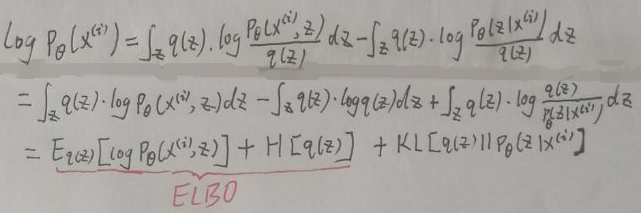 log Pθ(x⁽ⁱ⁾) = ∫_z q(z). log Pθ(x⁽ⁱ⁾, z)/q(z) dz - ∫_z q(z) · log Pθ(z|x⁽ⁱ⁾)/q(z) dz
= ∫_z q(z) · log Pθ(x⁽ⁱ⁾, z) dz - ∫_z q(z) · log q(z) dz + ∫_z q(z) · log q(z)/Pθ(z|x⁽ⁱ⁾) dz
= E_q(z) [log Pθ(x⁽ⁱ⁾, z)] + H [q(z)] + KL [q(z) || Pθ(z|x⁽ⁱ⁾]
ELBO